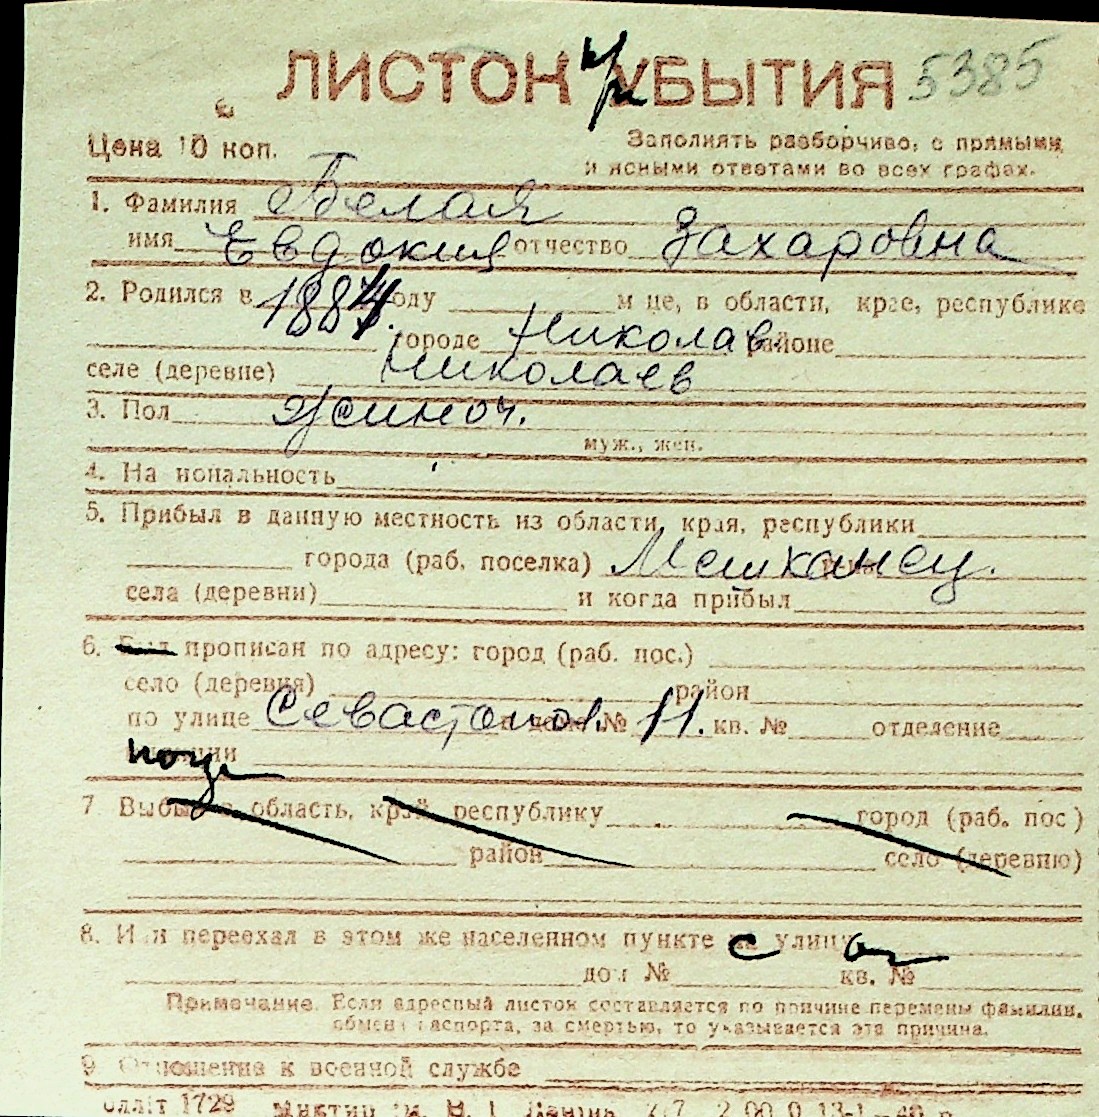 ЛИСТОК УБЫТИЯ 5385
Цена 10 коп.
Заполнять разборчиво, с прямыми
и ясными ответами во всех графах.
1. Фамилия Белая
имя Евдокия отчество Захаровна
2. Родился в 1884 году м це, в области, крае, республике
городе Николаев. районе
селе (деревне) Николаев
3. Пол жиноч.
муж., жен.
4. На иональность
5. Прибыл в данную местность из области, края, республики
города (раб. поселка)
села (деревни) и когда прибыл
6. Был прописан по адресу: город (раб. пос.)
село (деревня) район
по улице Севастопол. дом № 11. кв. № отделение
7 Выбыл в область, край республику город (раб. пос)
район село (деревню)
8. Или переехал в этом же населенном пункте с улицы
дом № кв. №
Примечание. Если адресный листок составляется по причине перемены фамилии,
обмена паспорта, за смертью, то указывается эта причина.
9. Отношение к военной службе